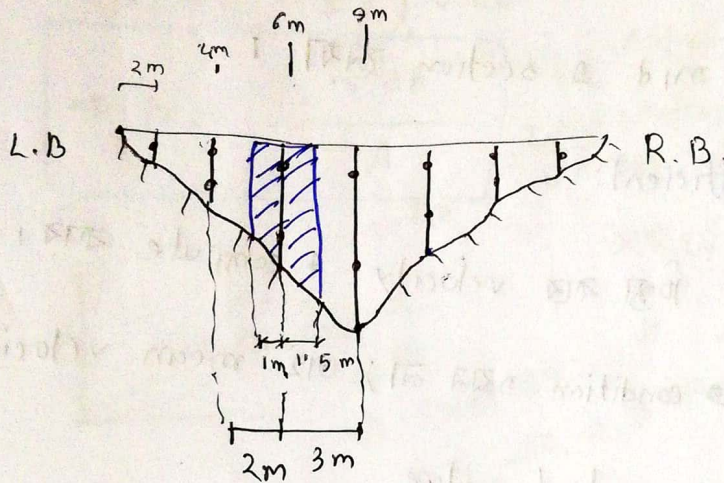 9m
6m
4m
2m
L.B
R.B.
1m 1.5 m
2m 3m